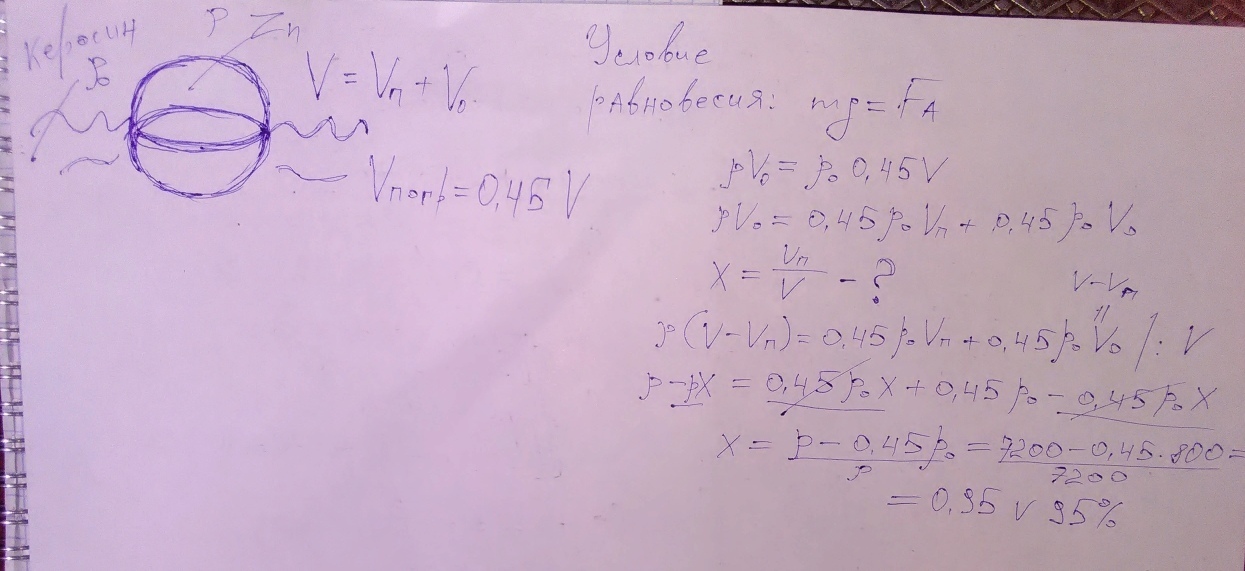 Керосин
ρ₀
ρ Zn
V = Vп + V₀
Vпогр = 0,45 V
Условие
равновесия: mg = FА
ρV₀ = ρ₀ 0,45V
ρV₀ = 0,45 ρ₀ Vп + 0,45 ρ₀ V₀
X = Vп/V - ?
V-Vп
ρ(V-Vп) = 0,45 ρ₀ Vп + 0,45 ρ₀ V₀ /: V
ρ - ρX = 0,45 ρ₀ X + 0,45 ρ₀ - 0,45 ρ₀ X
X = (ρ - 0,45 ρ₀)/ρ = (7200 - 0,45·800)/7200 =
= 0,95 v 95%